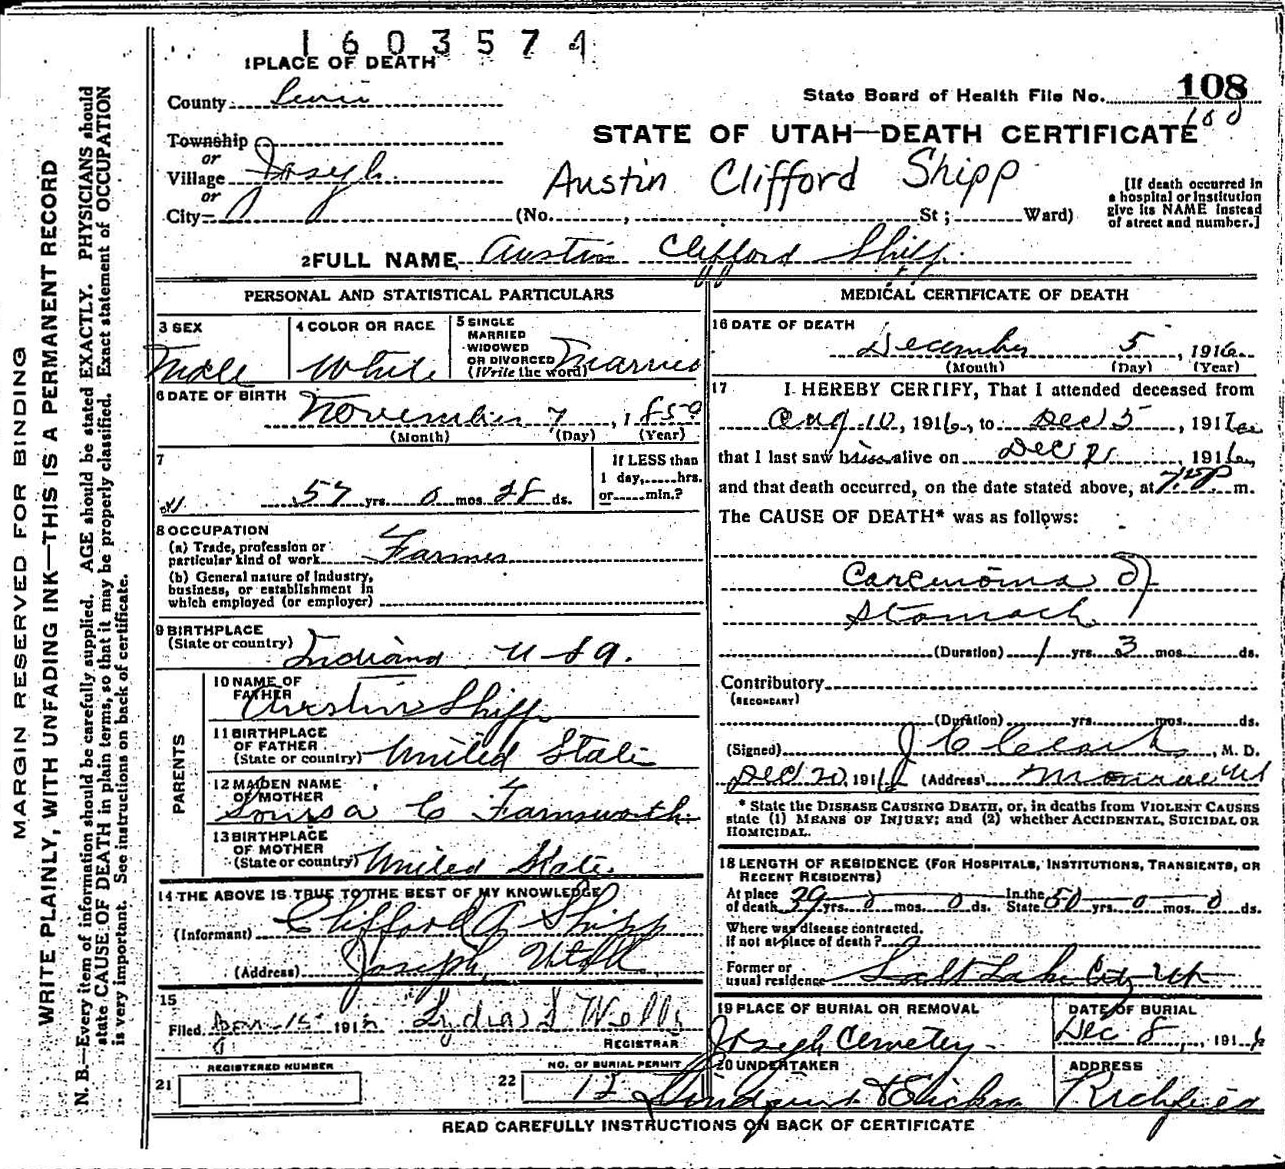 1603574
1 PLACE OF DEATH
County Sevier
State Board of Health File No. 108
108
Township
or
Village Joseph
or
City
STATE OF UTAH—DEATH CERTIFICATE
Austin Clifford Shipp
(No. , St ; Ward)
[If death occurred in
a hospital or institution
give its NAME instead
of street and number.]
2 FULL NAME Austin Clifford Shipp
PERSONAL AND STATISTICAL PARTICULARS
3 SEX
Male
4 COLOR OR RACE
White
5 SINGLE
MARRIED
WIDOWED
OR DIVORCED
(Write the word) Married
6 DATE OF BIRTH
November 7, 1859
(Month) (Day) (Year)
7
57 yrs. 0 mos. 28 ds.
If LESS than
1 day, hrs.
or min.?
8 OCCUPATION
(a) Trade, profession or
particular kind of work Farmer
(b) General nature of industry,
business, or establishment in
which employed (or employer)
9 BIRTHPLACE
(State or country) Indiana U S A.
PARENTS
10 NAME OF
FATHER
Austin Shipp
11 BIRTHPLACE
OF FATHER
(State or country) United State
12 MAIDEN NAME
OF MOTHER
Louisa C Farnsworth
13 BIRTHPLACE
OF MOTHER
(State or country) United State
14 THE ABOVE IS TRUE TO THE BEST OF MY KNOWLEDGE
(Informant) Clifford A Shipp
(Address) Joseph, Utah
15
Filed Jan 15 191 Lydia S Wells
REGISTRAR
REGISTERED NUMBER
21
NO. OF BURIAL PERMIT
22 12
MEDICAL CERTIFICATE OF DEATH
16 DATE OF DEATH
December 5, 1916
(Month) (Day) (Year)
17 I HEREBY CERTIFY, That I attended deceased from
Aug 10, 1916, to Dec 5, 1916
that I last saw him alive on Dec 1916,
and that death occurred, on the date stated above, at m.
The CAUSE OF DEATH* was as follows:
Carcenoma of
Stomach
(Duration) 1 yrs. 3 mos. ds.
Contributory
(SECONDARY)
(Duration) yrs. mos. ds.
(Signed) , M. D.
Dec 20, 1916 (Address) Monroe Ut
* State the DISEASE CAUSING DEATH, or, in deaths from VIOLENT CAUSES
state (1) MEANS OF INJURY; and (2) whether ACCIDENTAL, SUICIDAL OR
HOMICIDAL.
18 LENGTH OF RESIDENCE (FOR HOSPITALS, INSTITUTIONS, TRANSIENTS, OR
RECENT RESIDENTS)
At place
of death 39 yrs. 0 mos. 0 ds. In the
State 50 yrs. 0 mos. 0 ds.
Where was disease contracted.
If not at place of death?
Former or
usual residence Salt Lake City Ut
19 PLACE OF BURIAL OR REMOVAL
Joseph Cemetery
DATE OF BURIAL
Dec 8, 1916
20 UNDERTAKER
ADDRESS
Richfield
READ CAREFULLY INSTRUCTIONS ON BACK OF CERTIFICATE
MARGIN RESERVED FOR BINDING
WRITE PLAINLY, WITH UNFADING INK—THIS IS A PERMANENT RECORD
N. B.—Every item of information should be carefully supplied. AGE should be stated EXACTLY. PHYSICIANS should
state CAUSE OF DEATH in plain terms, so that it may be properly classified. Exact statement of OCCUPATION
is very important. See instructions on back of certificate.